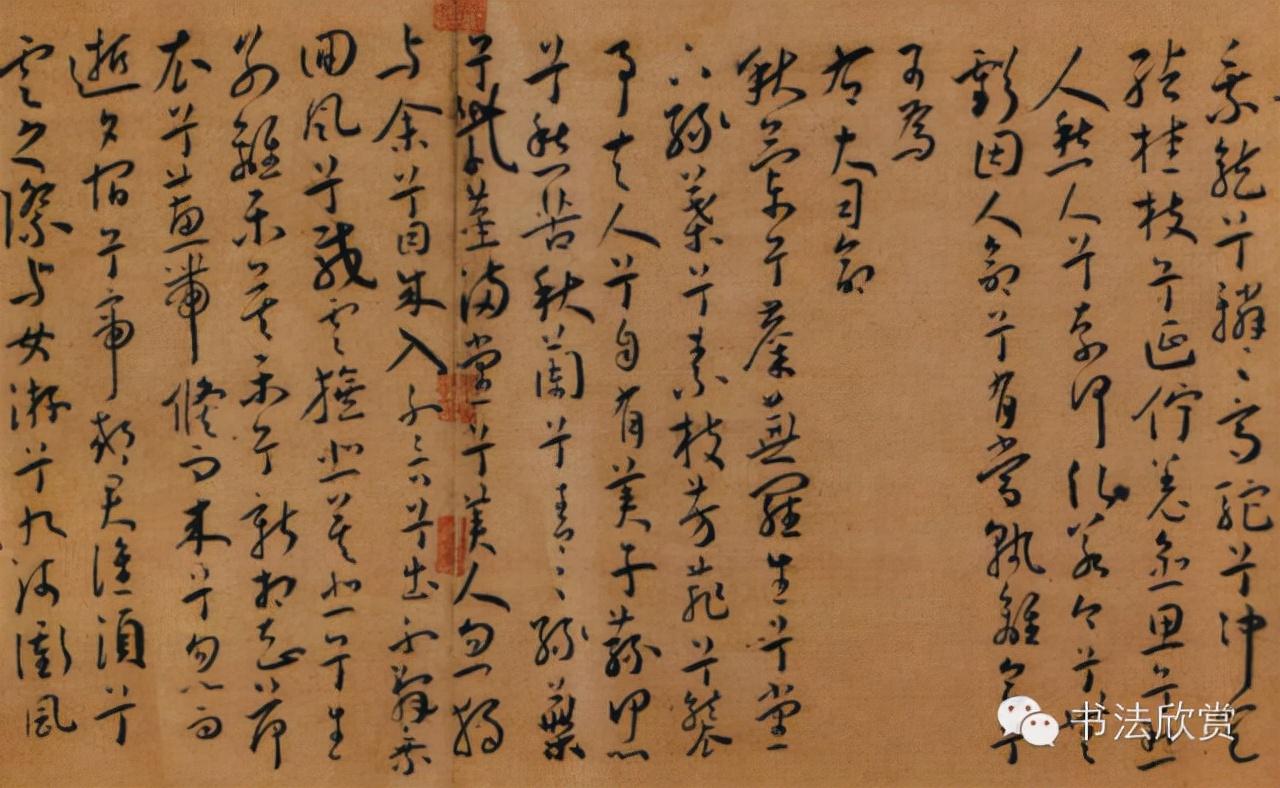 乘龍兮轔〻高駝兮沖天
結桂枝兮延佇羌愈思兮愁
人愁人兮奈何願若今兮無
虧固人命兮有當孰離合兮
可為
右大司命
秋蘭兮蘪蕪羅生兮堂
下綠葉兮素枝芳菲兮襲
予夫人兮自有美子蓀何以
兮愁苦秋蘭兮青〻綠葉
兮紫莖滿堂兮美人忽獨
與余兮目成入不言兮出不辭乘
回風兮載雲旗悲莫悲兮生
別離樂莫樂兮新相知荷
衣兮蕙帶儵而來兮忽而
逝夕宿兮帝郊君誰須兮
雲之際與女游兮九河衝風
书法欣赏